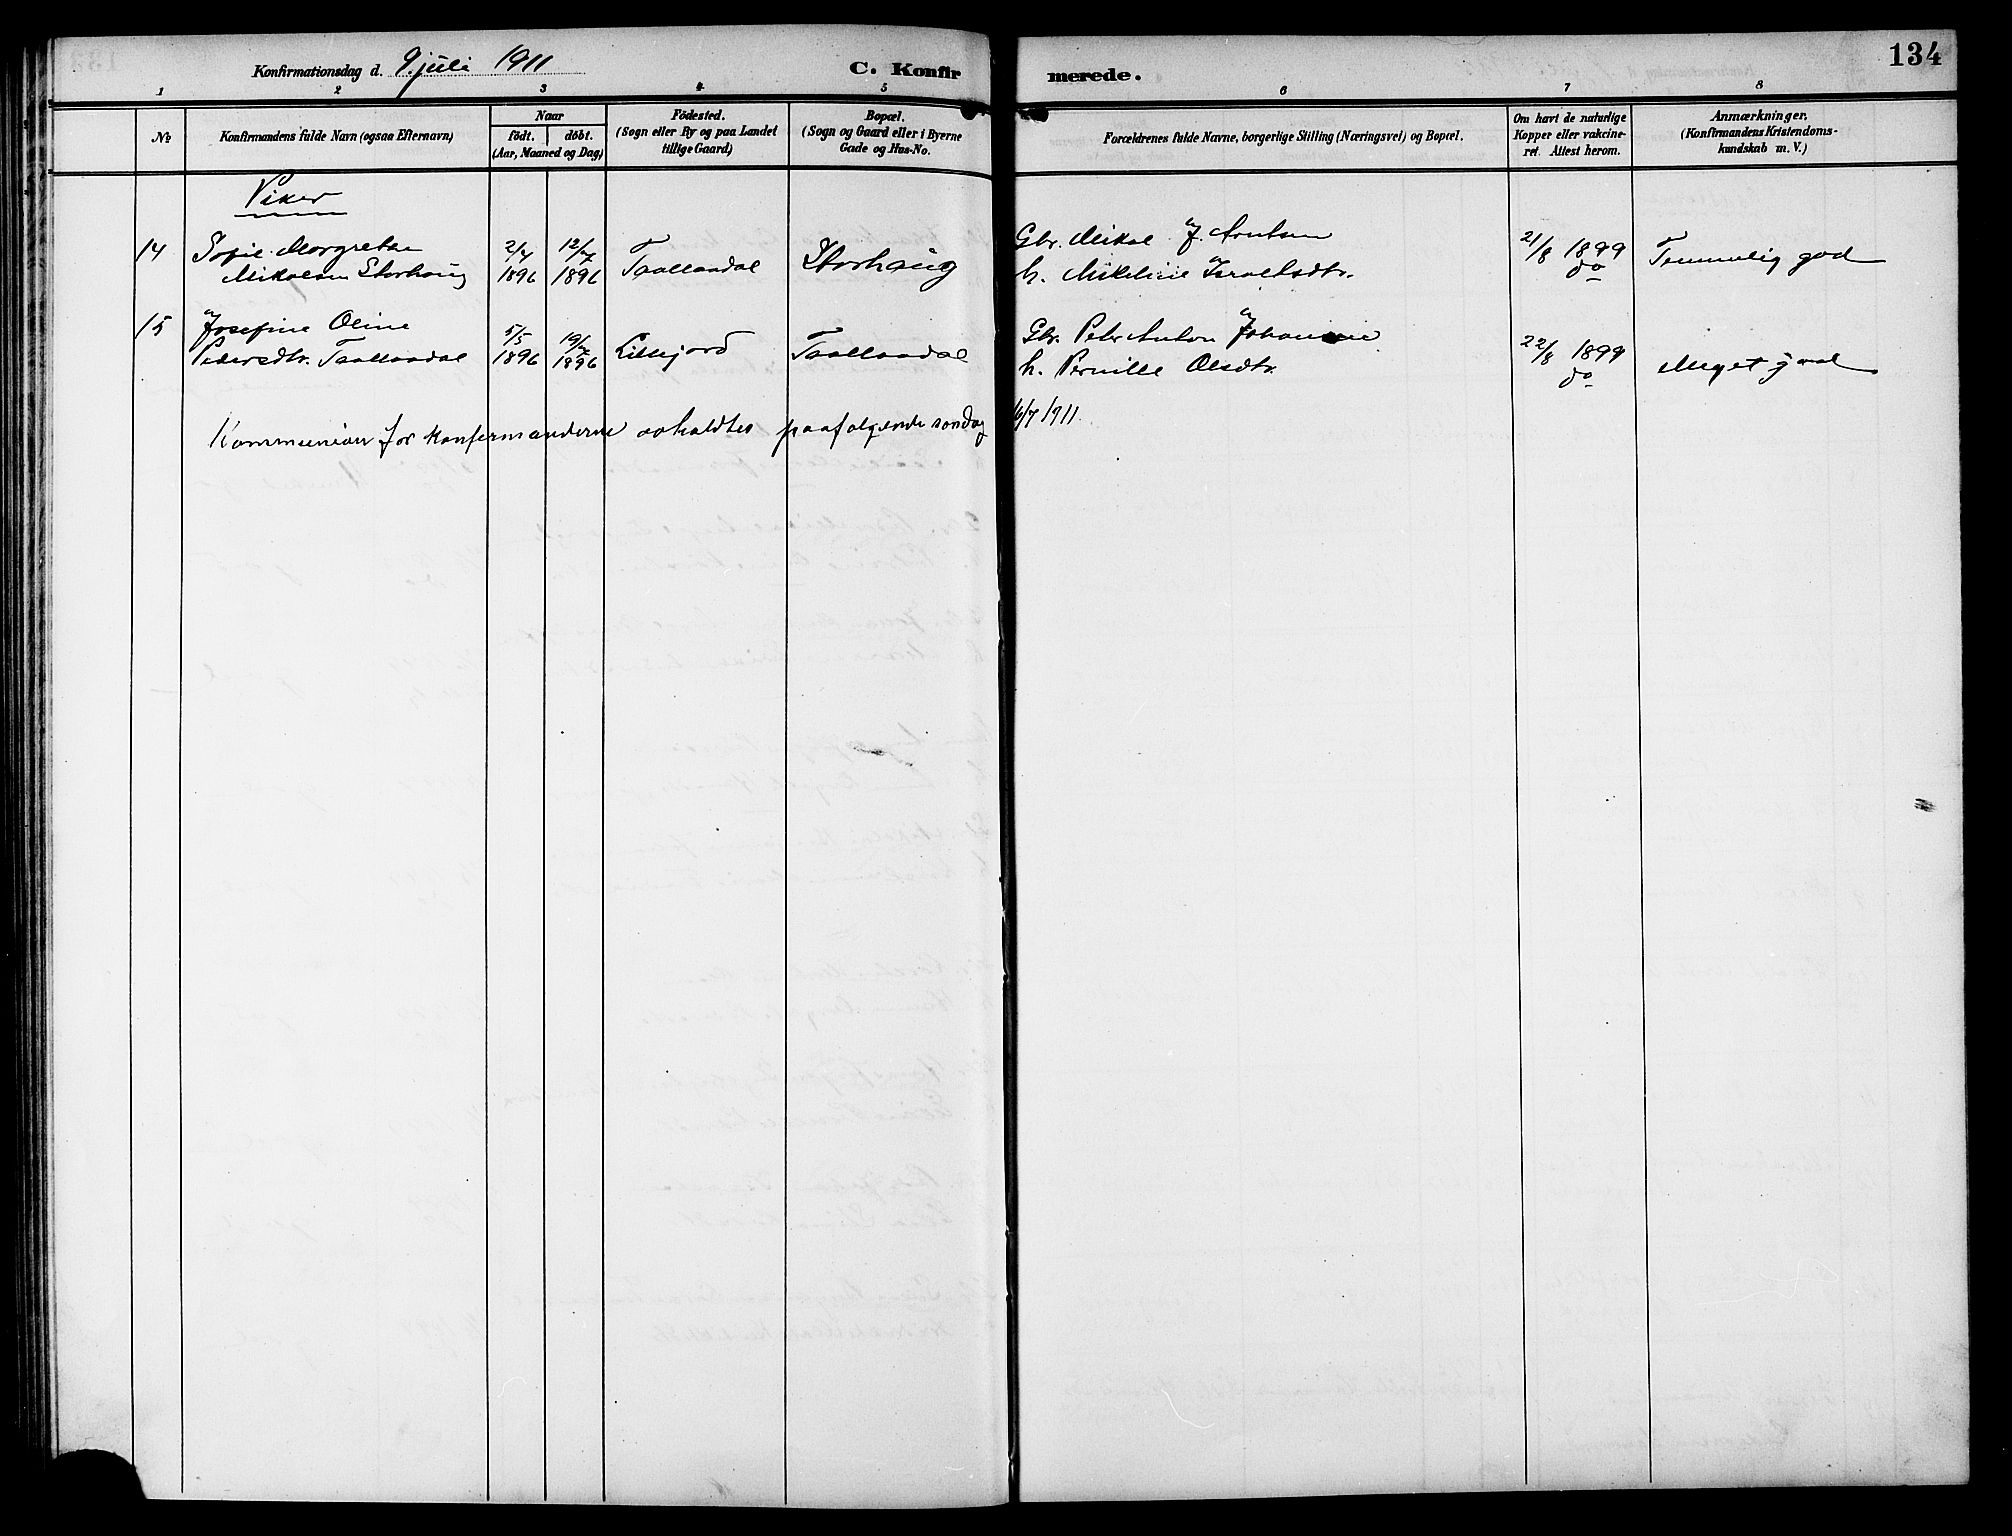 Konfirmationsdag d. 9. juli 1911
C. Konfirmerede.
134
1 2 3 4 5 6 7 8
No
Konfirmandens fulde Navn (ogsaa Efternavn)
Naar
födt. döbt.
(Aar, Maaned og Dag)
Födested.
(Sogn eller By og paa Landet
tillige Gaard)
Bopæl.
(Sogn og Gaard eller i Byerne
Gade og Hus-No.
Forældrenes fulde Navne, borgerlige Stilling (Næringsvei) og Bopæl.
Om havt de naturlige
Kopper eller vakcine-
ret. Attest herom.
Anmærkninger.
(Konfirmandens Kristendoms-
kundskab m. V.)
Piker
14 Sofie Margrethe 2/4 12/7 Gbr. Mikal J. Arntsen 21/8 1899
Mikalsen Storhaug 1896 1896 Taallaadal Storhaug h. Mikeline Israelsdtr. do Temmelig god
15 Josefine Oline 5/5 19/7 Gbr. Peder Anton Johansen 22/8 1899
Pedersdtr. Taallaadal 1896 1896 Lillejord Taallaadal h. Pernille Olsdtr. do Meget god
Kommunion for konfermanderne avholdtes paafølgende søndag 16/7 1911.